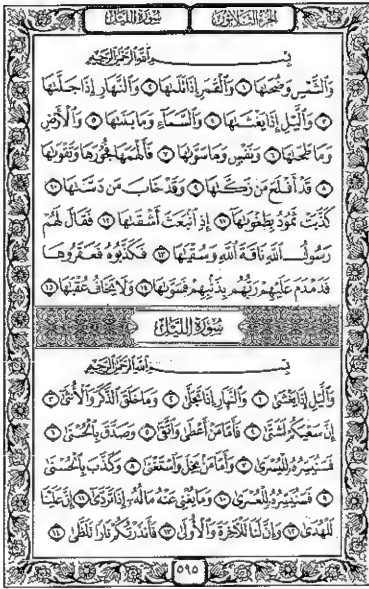 الجزء الثلاثون سورة الليل
بسم الله الرحمن الرحيم
وَالشَّمْسِ وَضُحَىٰهَا ١ وَالْقَمَرِ إِذَا تَلَىٰهَا ٢ وَالنَّهَارِ إِذَا جَلَّىٰهَا
٣ وَاللَّيْلِ إِذَا يَغْشَىٰهَا ٤ وَالسَّمَاءِ وَمَا بَنَىٰهَا ٥ وَالْأَرْضِ
وَمَا طَحَىٰهَا ٦ وَنَفْسٍ وَمَا سَوَّىٰهَا ٧ فَأَلْهَمَهَا فُجُورَهَا وَتَقْوَىٰهَا
٨ قَدْ أَفْلَحَ مَن زَكَّىٰهَا ٩ وَقَدْ خَابَ مَن دَسَّىٰهَا ١٠
كَذَّبَتْ ثَمُودُ بِطَغْوَىٰهَا ١١ إِذِ انبَعَثَ أَشْقَىٰهَا ١٢ فَقَالَ لَهُمْ
رَسُولُ اللَّهِ نَاقَةَ اللَّهِ وَسُقْيَٰهَا ١٣ فَكَذَّبُوهُ فَعَقَرُوهَا
فَدَمْدَمَ عَلَيْهِمْ رَبُّهُم بِذَنبِهِمْ فَسَوَّىٰهَا ١٤ وَلَا يَخَافُ عُقْبَٰهَا ١٥
سورة الليل
بسم الله الرحمن الرحيم
وَاللَّيْلِ إِذَا يَغْشَىٰ ١ وَالنَّهَارِ إِذَا تَجَلَّىٰ ٢ وَمَا خَلَقَ الذَّكَرَ وَالْأُنثَىٰ ٣
إِنَّ سَعْيَكُمْ لَشَتَّىٰ ٤ فَأَمَّا مَنْ أَعْطَىٰ وَاتَّقَىٰ ٥ وَصَدَّقَ بِالْحُسْنَىٰ ٦
فَسَنُيَسِّرُهُ لِلْيُسْرَىٰ ٧ وَأَمَّا مَن بَخِلَ وَاسْتَغْنَىٰ ٨ وَكَذَّبَ بِالْحُسْنَىٰ
٩ فَسَنُيَسِّرُهُ لِلْعُسْرَىٰ ١٠ وَمَا يُغْنِي عَنْهُ مَالُهُ إِذَا تَرَدَّىٰ ١١ إِنَّ عَلَيْنَا
لَلْهُدَىٰ ١٢ وَإِنَّ لَنَا لَلْآخِرَةَ وَالْأُولَىٰ ١٣ فَأَنذَرْتُكُمْ نَارًا تَلَظَّىٰ ١٤
٥٩٥